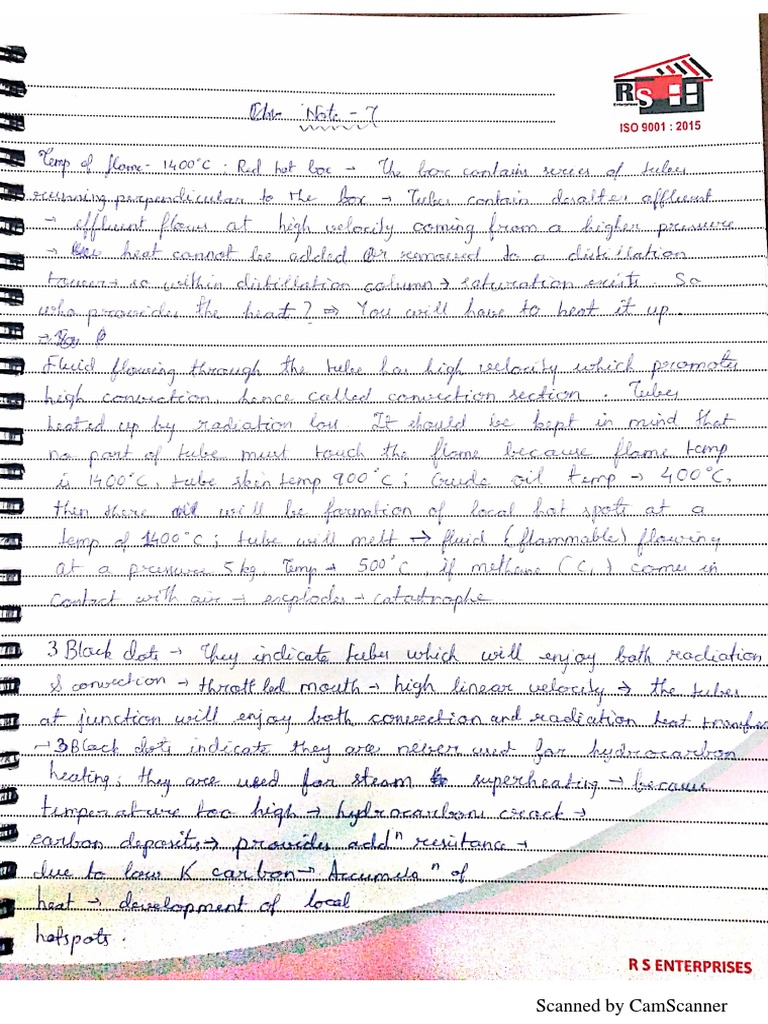 RS
Enterprises
ISO 9001 : 2015
Note - 7
Temp of flame - 1400°C ; Red hot box → The box contains series of tubes
running perpendicular to the box → Tubes contain desalter effluent
→ effluent flows at high velocity coming from a higher pressure
→ heat cannot be added or removed to a distillation
tower → so within distillation column → saturation exists. So
who provides the heat? ⇒ You will have to heat it up.
Fluid flowing through the tube has high velocity which promotes
high convection, hence called convection section. Tubes
heated up by radiation loss. It should be kept in mind that
no part of tube must touch the flame because flame temp
is 1400°C, tube skin temp 900°C ; Crude oil temp → 400°C,
then there will be formation of local hot spots at a
temp of 1400°C ; tube will melt → fluid (flammable) flowing
at a pressure 5 kg, Temp → 500°C if methane (C₁) comes in
contact with air → explodes → catastrophe
3 Black dots → They indicate tubes which will enjoy both radiation
& convection → throttled mouth → high linear velocity → the tubes
at junction will enjoy both convection and radiation heat transfer
→ 3 Black dots indicate they are never used for hydrocarbon
heating; they are used for steam superheating → because
temperature too high → hydrocarbons crack →
carbon deposits → provides addⁿ resistance →
due to low K carbon → Accumulaⁿ of
heat → development of local
hotspots.
R S ENTERPRISES
Scanned by CamScanner